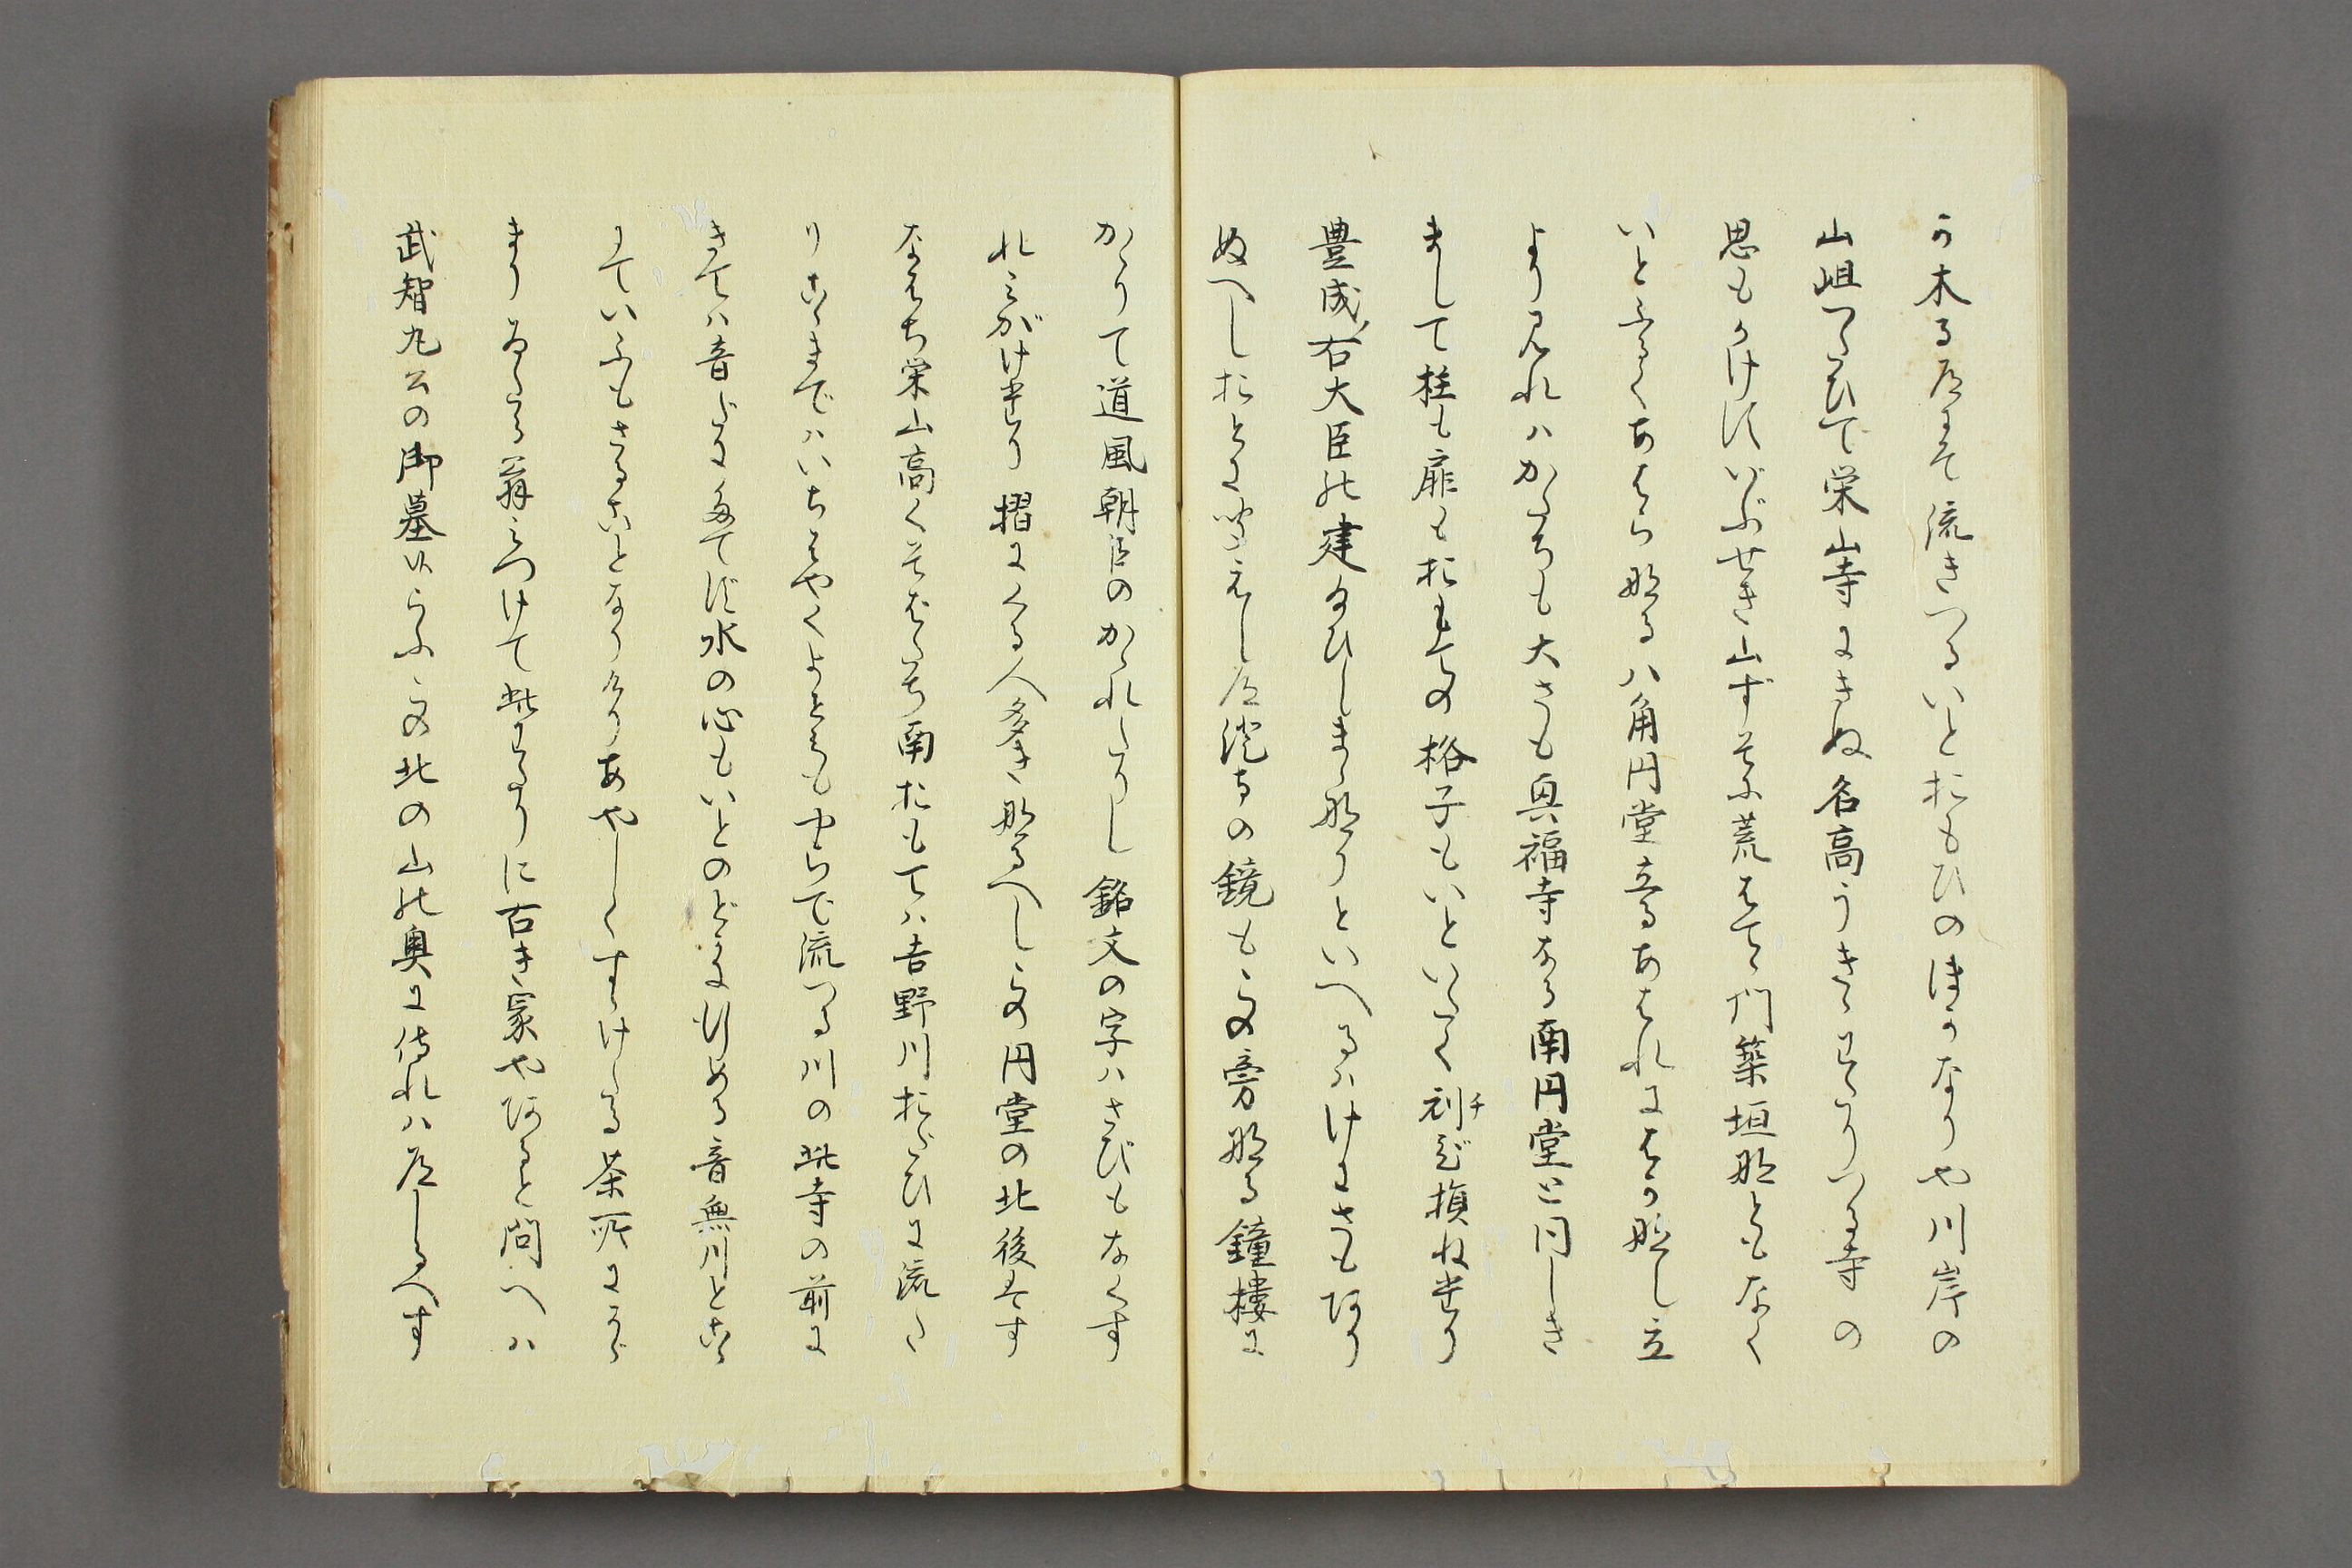 う木る屋まて流きつるいとおもひの ほかなりや川岸の
山岨つたひて栄山寺にきぬ名高うきこえわたりつる寺の
思もかけすいぶせき山ずそに荒はてゝ門築垣なともなく
いとふるくあはらなる八角円堂立るあはれにはかなし立
より見れハかたちも大さも興福寺なる南円堂と同しき
まして柱も扉もおもての格子もいといたく刹チび損ねたり
豊成右大臣の建給ひしまゝなりといへるハけにさもあり
ぬへしおとに聞えし屋澄寺の鏡もこの旁なる鐘楼に
かゝりて道風朝臣のかゝれたりし銘文の字ハさびもなくす
れみがけたり摺にくる人多きなるへしこの円堂の北後はす
なはち栄山高くそばたち南おもてハ吉野川おびたひに流た
りこゝまでハいちはやくよとみもやらで流つる川の此寺の前に
きてハ音だにたてず水の心もいとのどかに行める音無川とこゝ
にていふもさることなりけりあやしくすゝけたる茶所にかゝ
まりゐたる翁みつけて此わたりに古き冢やあると問へハ
武智丸公の御墓といふこの北の山の奥に侍れハ屋しるへす